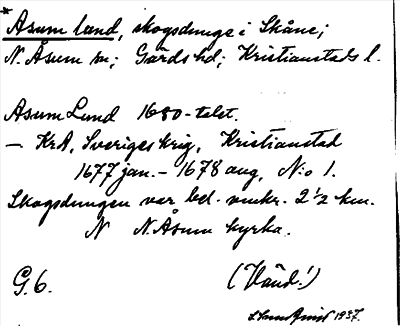 * Åsum lund, skogsdunge i Skåne;
N. Åsum sn; Gärds hd; Kristianstads l.
Åsum Lund 1680-talet.
— KrA, Sveriges krig, Kristianstad
1677 jan. – 1678 aug, N:o 1.
Skogsdungen var bel. omkr. 2 1/2 km.
N N. Åsum kyrka.
G. 6. (Vänd!)
1937.